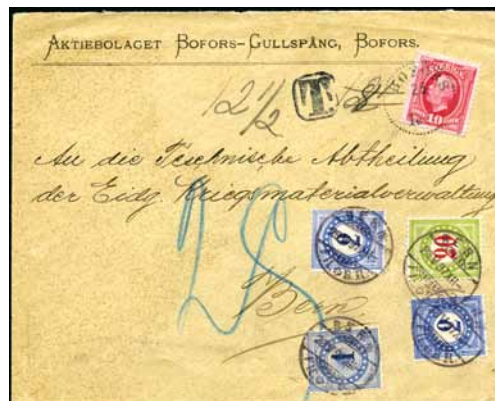 AKTIEBOLAGET BOFORS-GULLSPÅNG, BOFORS.
12 1/2 T
10
An die Technische Abtheilung
der Eidg. Kriegsmaterialverwaltung
25
2 BERN
20 BERN
Bern.
2 BERN
1 BERN